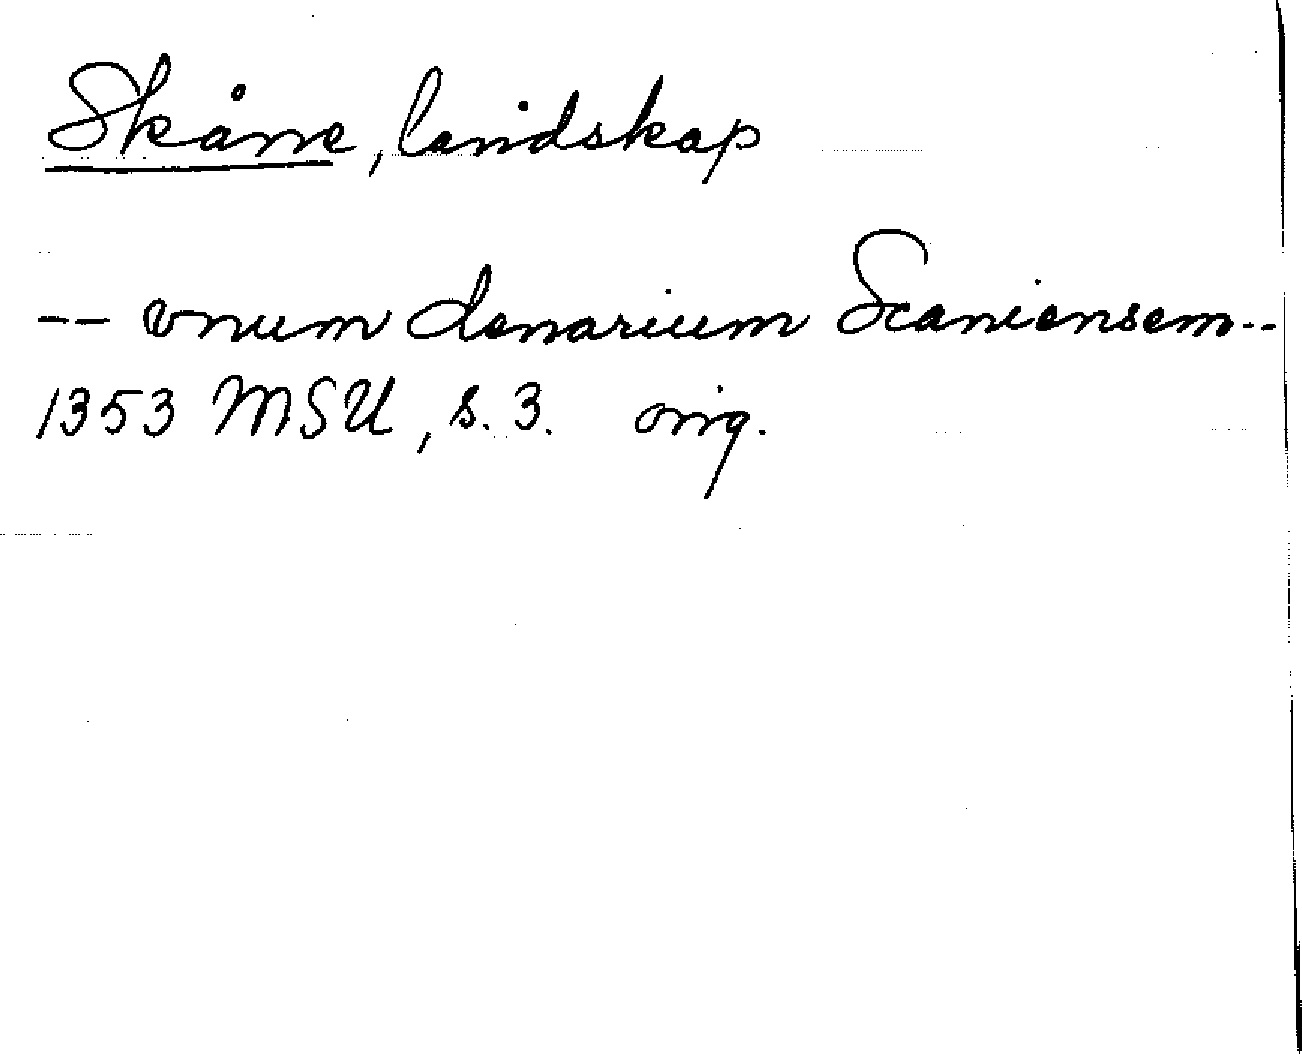 Skåne, landskap
-- vnum denarium Scaniensem --
1353 MSU, s. 3. orig.